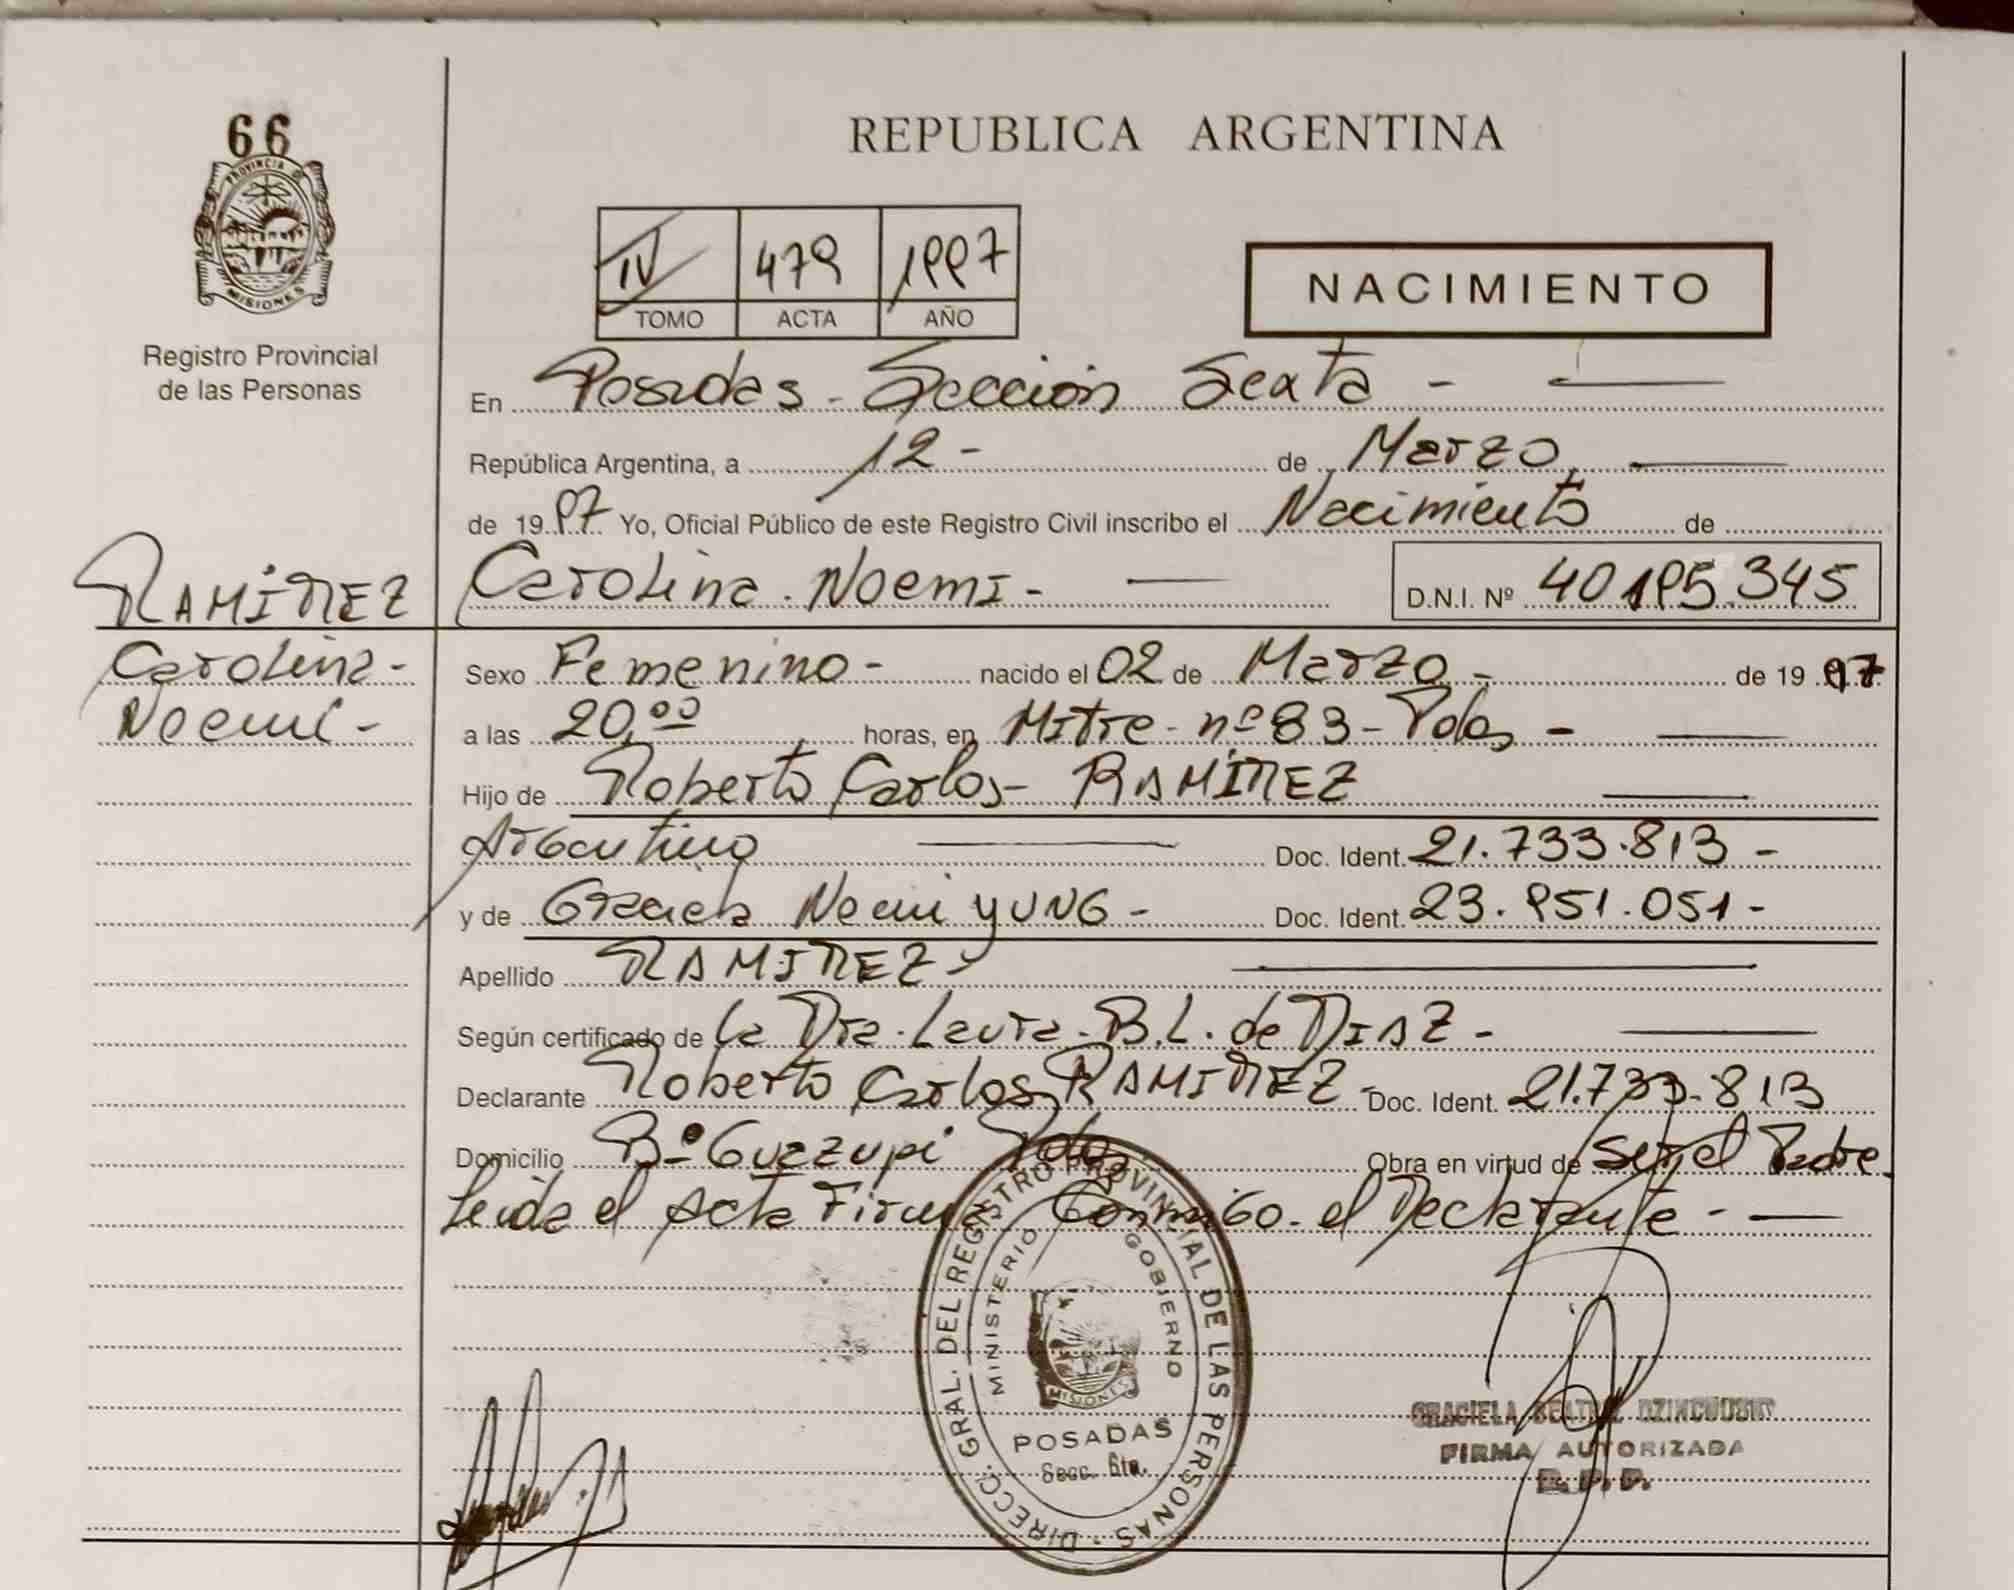 66
PROVINCIA DE
MISIONES
Registro Provincial
de las Personas
REPUBLICA ARGENTINA
IV 479 1997
TOMO ACTA AÑO
NACIMIENTO
En Posadas - Sección Sexta -
República Argentina, a 12 - de Marzo
de 19 97 Yo, Oficial Público de este Registro Civil inscribo el Nacimiento de
RAMÍREZ
Carolina -
Noemí -
Carolina Noemi - D.N.I. Nº 40195.345
Sexo Femenino - nacido el 02 de Marzo - de 19 97
a las 20,00 horas, en Mitre - nº 83 - Pdas -
Hijo de Roberto Carlos - RAMÍREZ
Argentino Doc. Ident. 21.733.813 -
y de Graciela Noemi YUNG - Doc. Ident. 23.951.051 -
Apellido RAMIREZ -
Según certificado de la Dra. Laura B.L. de DIAZ -
Declarante Roberto Carlos RAMIREZ - Doc. Ident. 21.733.813
Domicilio Bº Guazupi Pdas Obra en virtud de ser el Padre
Leida el Acta Firma Conmigo el Declarante -
DIRECC. GRAL. DEL REGISTRO PROVINCIAL DE LAS PERSONAS
MINISTERIO GOBIERNO
MISIONES
POSADAS
Secc. 6ta.
GRACIELA BEATRIZ
FIRMA AUTORIZADA